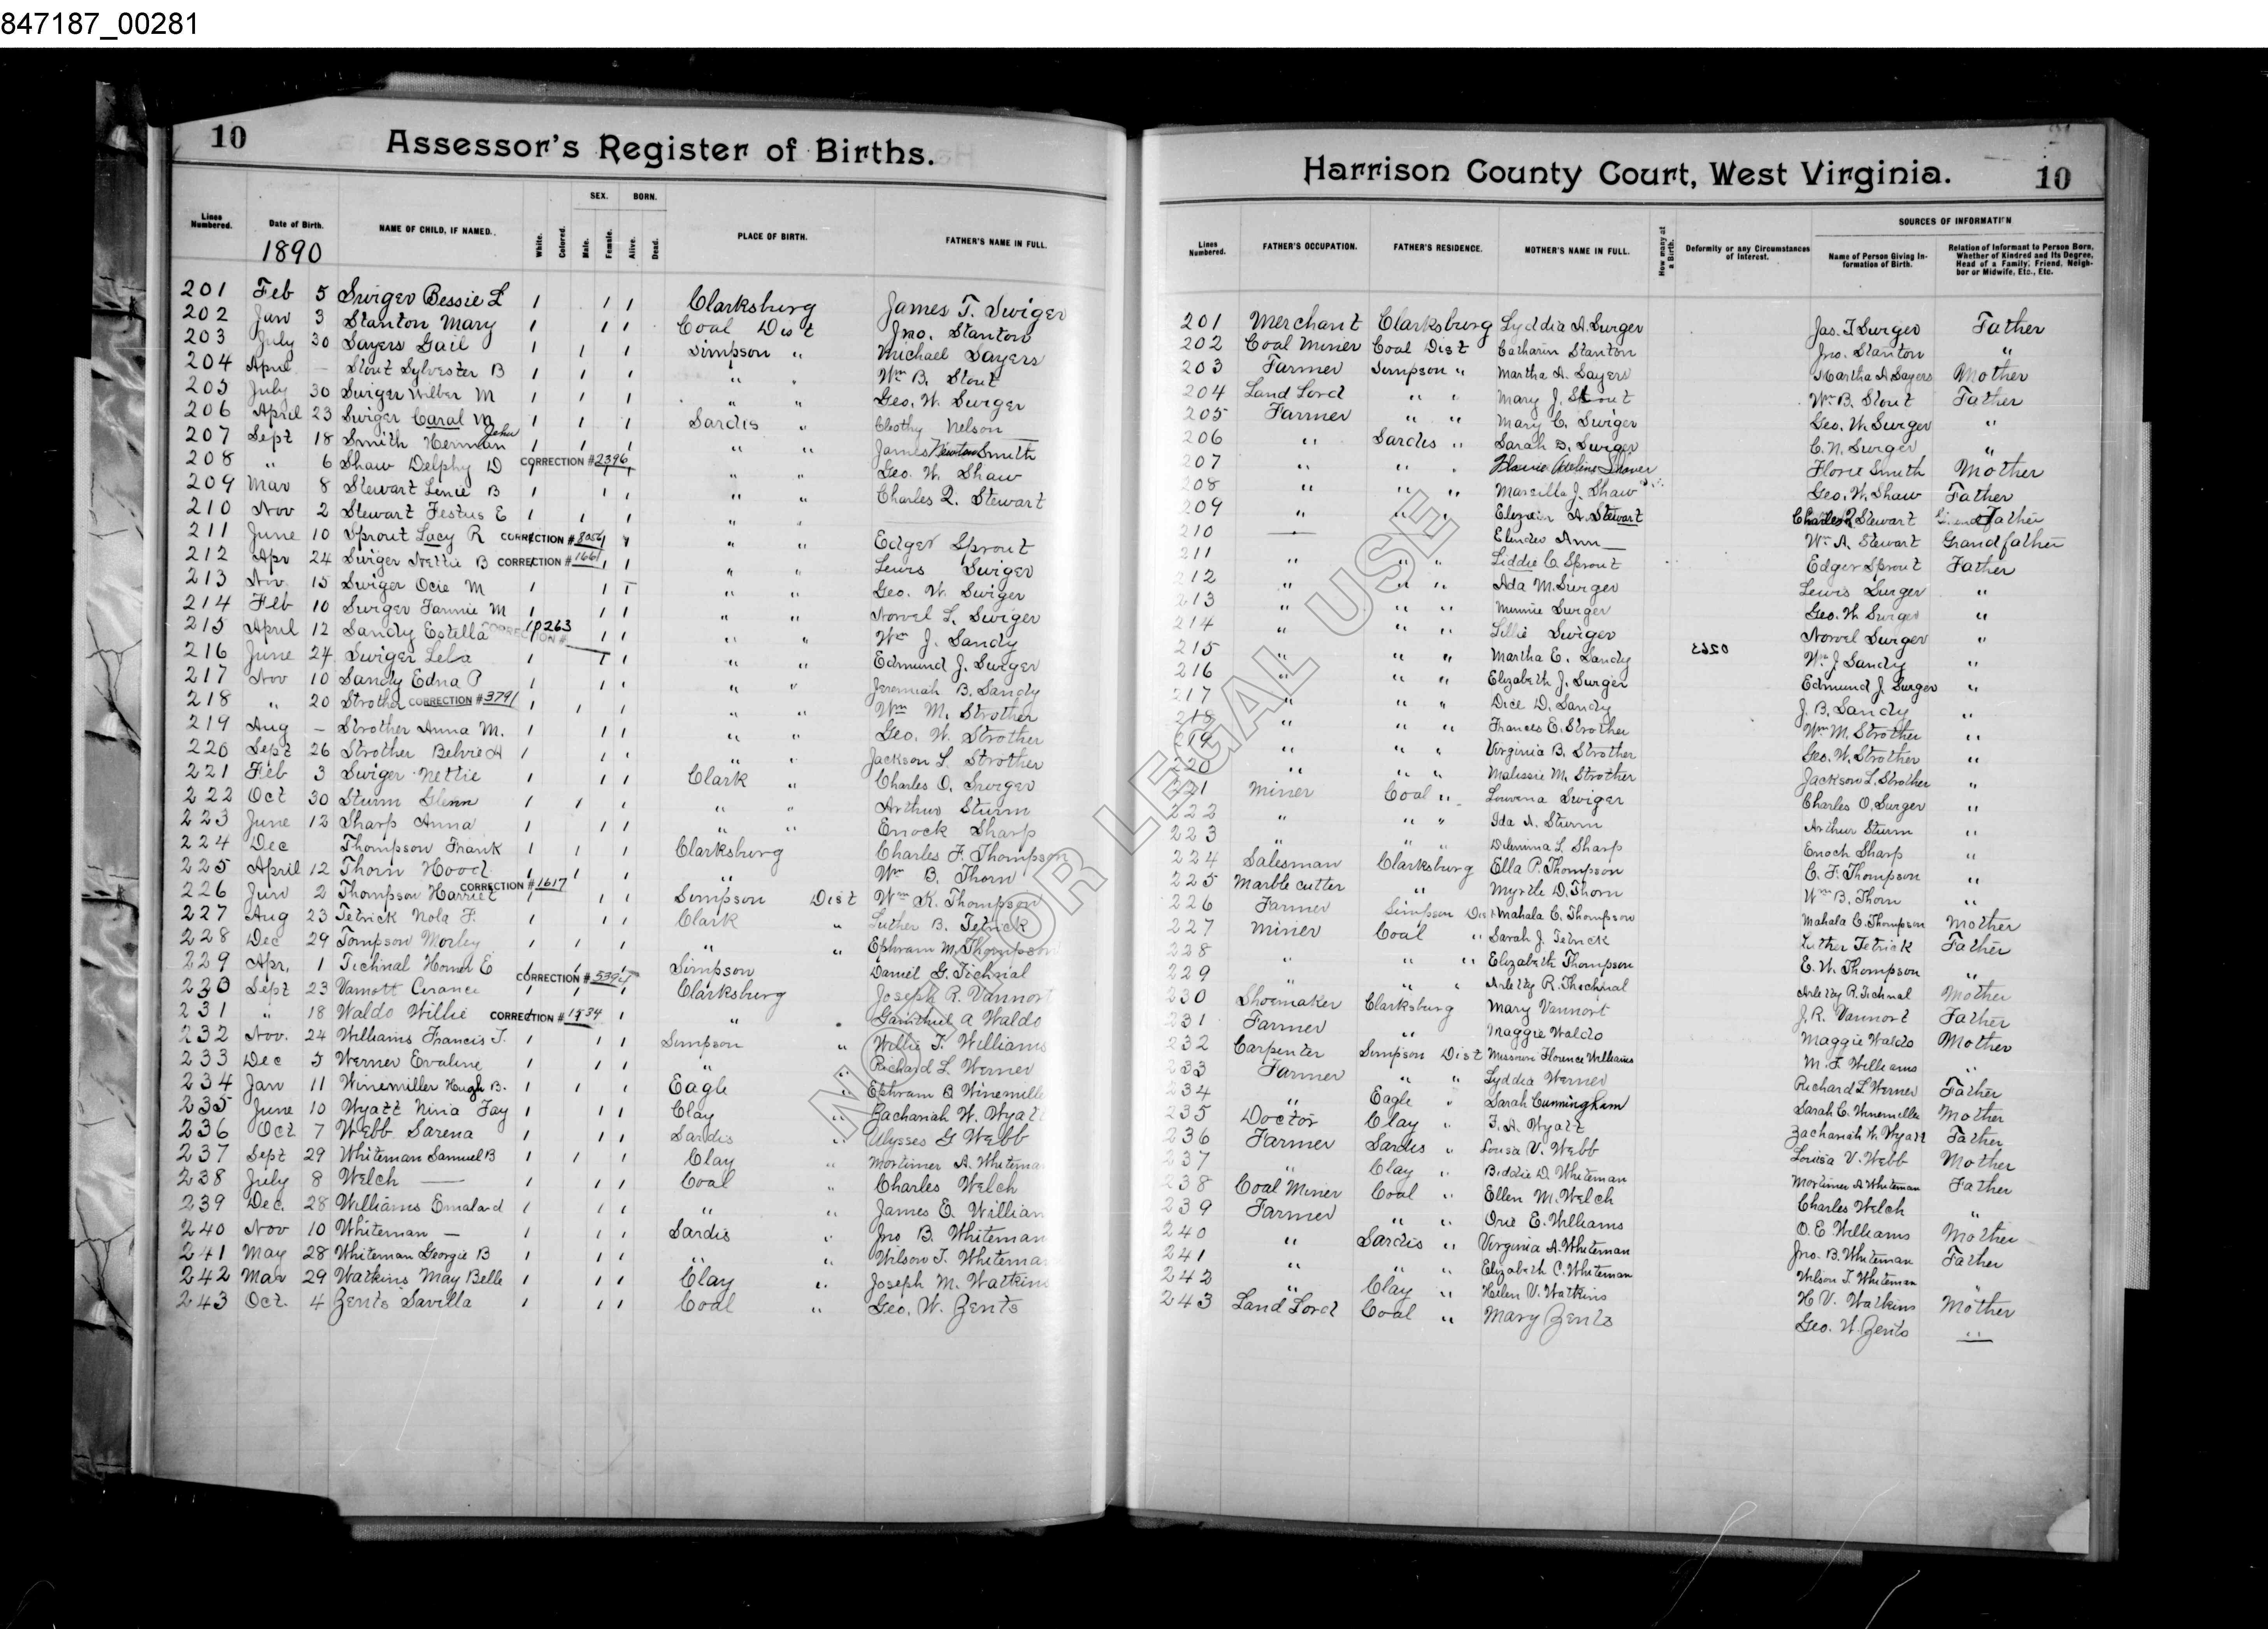 847187_00281
10
Assessor's Register of Births.
SEX. BORN.
Lines Numbered. Date of Birth. NAME OF CHILD, IF NAMED. White. Colored. Male. Female. Alive. Dead. PLACE OF BIRTH. FATHER'S NAME IN FULL.
1890
201 Feb 5 Swiger Bessie L 1 1 1 Clarksburg James T. Swiger
202 Jan 3 Stanton Mary 1 1 1 Coal Dist Jno. Stanton
203 July 30 Sayers Gail 1 1 1 Simpson " Michael Sayers
204 April — Stout Sylvester B 1 1 1 " " Wm B. Stout
205 July 30 Swiger Wilber M 1 1 1 " " Geo. W. Swiger
206 April 23 Swiger Caral M 1 1 1 Sardis " Cleothy Nelson
207 Sept 18 Smith Herman John 1 1 1 " " James Newton Smith
208 " 6 Shaw Delphy D CORRECTION #2396 1 1 1 " " Geo. W. Shaw
209 Mar 8 Stewart Lenie B 1 1 1 " " Charles Q. Stewart
210 Nov 2 Stewart Festus E 1 1 1 " "
211 June 10 Sprout Lacy R CORRECTION #8056 1 " " Edger Sprout
212 Apr 24 Swiger Nettie B CORRECTION #1661 1 1 " " Lewis Swiger
213 Nov. 15 Swiger Ocie M 1 1 1 " " Geo. W. Swiger
214 Feb 10 Swiger Fannie M 1 1 1 " " Norvel L. Swiger
215 April 12 Sandy Estella CORRECTION # 10263 1 1 " " Wm J. Sandy
216 June 24 Swiger Lela 1 1 1 " " Edmund J. Swiger
217 Nov 10 Sandy Edna P 1 1 1 " " Jeremiah B. Sandy
218 " 20 Strother CORRECTION #3791 1 1 1 " " Wm M. Strother
219 Aug — Strother Anna M. 1 1 1 " " Geo. W. Strother
220 Sept 26 Strother Belvie A 1 1 1 " " Jackson L. Strother
221 Feb 3 Swiger Nettie 1 1 1 Clark " Charles O. Swiger
222 Oct 30 Sturm Glenn 1 1 1 " " Arthur Sturm
223 June 12 Sharp Anna 1 1 1 " " Enock Sharp
224 Dec Thompson Frank 1 1 1 Clarksburg Charles F. Thompson
225 April 12 Thorn Hood 1 1 1 " Wm B. Thorn
226 Jun 2 Thompson Harriet CORRECTION #1617 1 1 1 Simpson Dist Wm K. Thompson
227 Aug 23 Tetrick Nola F. 1 1 1 Clark " Luther B. Tetrick
228 Dec 29 Tompson Morley 1 1 1 " " Ephram M. Thompson
229 Apr. 1 Tichnal Homer E 1 1 1 Simpson Daniel G. Tichnal
230 Sept 23 Vannort CORRECTION #5394 1 1 1 Clarksburg Joseph R. Vannort
231 " 18 Waldo Willie CORRECTION #1934 1 " A Waldo
232 Nov. 24 Williams Francis T. 1 1 1 Simpson " Willie T. Williams
233 Dec 5 Werner Evaline 1 1 1 " " Richard L. Werner
234 Jan 11 Winemiller Hugh B. 1 1 1 Eagle " Ephram B Winemille
235 June 10 Wyatt Nina Fay 1 1 1 Clay " Zachariah W. Wyatt
236 Oct 7 Webb Sarena 1 1 1 Sardis " Ulysses G Webb
237 Sept 29 Whiteman Samuel B 1 1 1 Clay " Mortimer A. Whitema
238 July 8 Welch — 1 1 1 Coal " Charles Welch
239 Dec. 28 Williams Emalard 1 1 1 " " James E. William
240 Nov 10 Whiteman — 1 1 1 Sardis " Jno B. Whiteman
241 May 28 Whiteman Georgie B 1 1 1 " " Wilson T. Whitema
242 Mar 29 Watkins May Belle 1 1 1 Clay " Joseph M. Watkins
243 Oct. 4 Zents Savilla 1 1 1 Coal " Geo. W. Zents
Harrison County Court, West Virginia.
10
SOURCES OF INFORMATION
Lines Numbered. FATHER'S OCCUPATION. FATHER'S RESIDENCE. MOTHER'S NAME IN FULL. How many at a Birth. Deformity or any Circumstances of Interest. Name of Person Giving Information of Birth. Relation of Informant to Person Born, Whether of Kindred and Its Degree, Head of a Family, Friend, Neighbor or Midwife, Etc., Etc.
201 Merchant Clarksburg Lyddia A. Swiger Jas. T. Swiger Father
202 Coal Miner Coal Dist Catharin Stanton Jno. Stanton "
203 Farmer Simpson " Martha A. Sayers Martha A Sayers Mother
204 Land Lord " " Mary J. Stout Wm B. Stout Father
205 Farmer " " Mary C. Swiger Geo. W. Swiger "
206 " Sardis " Sarah D. Swiger C. N. Swiger "
207 " " " Adeline Shaver Florie Smith Mother
208 " " " Marcilla J. Shaw Geo. W. Shaw Father
209 " " " A. Stewart Charles Q Stewart Father
210 — Ann Wm A. Stewart Grandfather
211 " " " Liddie C. Sprout Edger Sprout Father
212 " " " Ada M. Swiger Lewis Swiger "
213 " " " Minnie Swiger Geo. W. Swiger "
214 " " " Lillie Swiger Norvel Swiger "
215 " " " Martha E. Sandy Wm J Sandy "
216 " " " Elizabeth J. Swiger Edmund J. Swiger "
217 " " " Dice D. Sandy J. B. Sandy "
218 " " " Frances E. Strother Wm M. Strother "
219 " " " Virginia B. Strother Geo. W. Strother "
220 " " " Malissie M. Strother Jackson L. Strother "
221 Miner Coal " Louvena Swiger Charles O. Swiger "
222 " " " Ida A. Sturm Arthur Sturm "
223 " " L. Sharp Enoch Sharp "
224 Salesman Clarksburg Ella P. Thompson C. F. Thompson "
225 Marble cutter " Myrtle D. Thorn Wm B. Thorn "
226 Farmer Simpson Dist Mahala C. Thompson Mahala C. Thompson Mother
227 Miner Coal " Sarah J. Tetrick Luther Tetrick Father
228 " " " Elizabeth Thompson E. W. Thompson "
229 " " " R. Thechnal R. Tichnal Mother
230 Shoemaker Clarksburg Mary Vannort J. R. Vannort Father
231 Farmer " Maggie Waldo Maggie Waldo Mother
232 Carpenter Simpson Dist Missouri Florence Williams M. F. Williams "
233 Farmer " " Lyddia Werner Richard L Werner Father
234 " Eagle " Sarah Cunningham Sarah C. Winemiller Mother
235 Doctor Clay " F. A. Wyatt Zachariah W. Wyatt Father
236 Farmer Sardis " Louisa V. Webb Louisa V. Webb Mother
237 " Clay " Biddie D. Whiteman Mortimer A Whiteman Father
238 Coal Miner Coal " Ellen M. Welch Charles Welch "
239 Farmer " " Orie E. Williams O. E. Williams Mother
240 " Sardis " Virginia A. Whiteman Jno. B. Whiteman Father
241 " " " Elizabeth C. Whiteman Wilson T. Whiteman "
242 " Clay " Helen V. Watkins H V. Watkins Mother
243 Land Lord Coal " Mary Zents Geo. W. Zents "
NOT FOR LEGAL USE